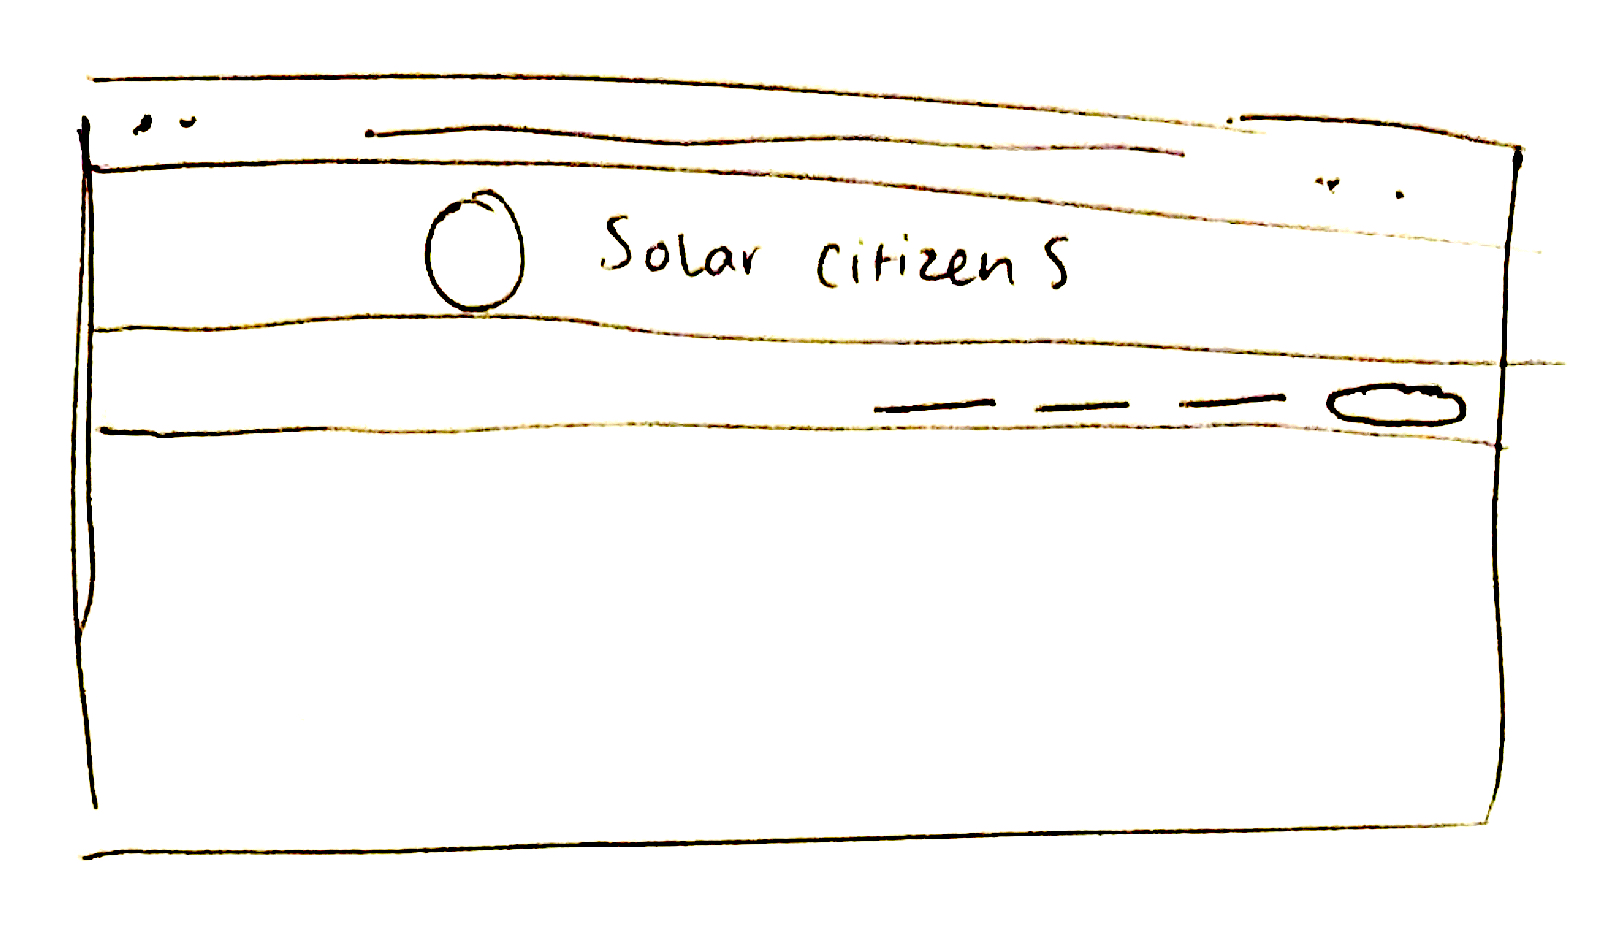 Solar citizens